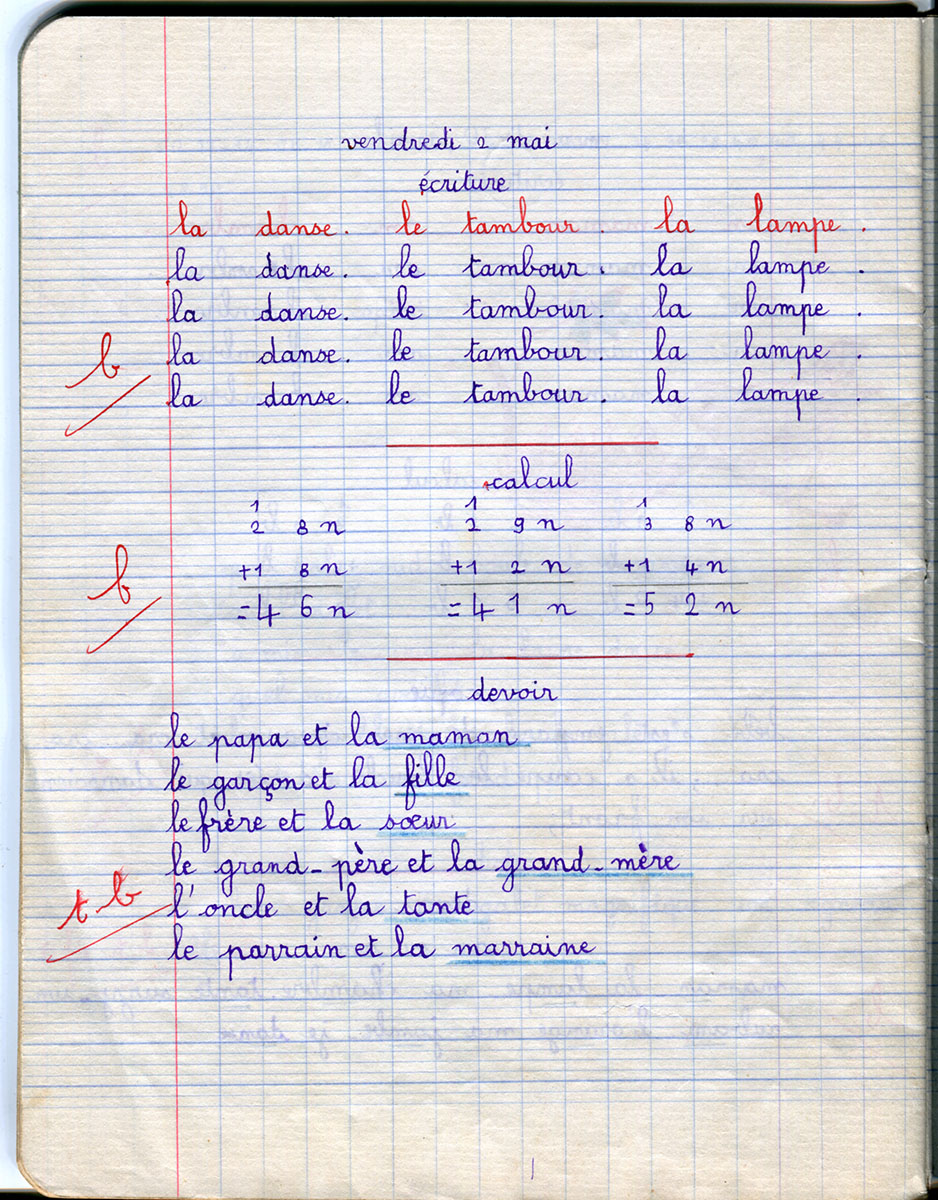 vendredi 2 mai
écriture
la danse. le tambour. la lampe.
la danse. le tambour. la lampe.
la danse. le tambour. la lampe.
la danse. le tambour. la lampe.
b
la danse. le tambour. la lampe.
calcul
1 1 1
2 8 n 2 9 n 3 8 n
+1 8 n +1 2 n +1 4 n
b
=4 6 n =4 1 n =5 2 n
devoir
le papa et la maman
le garçon et la fille
le frère et la sœur
le grand-père et la grand-mère
t b
l'oncle et la tante
le parrain et la marraine